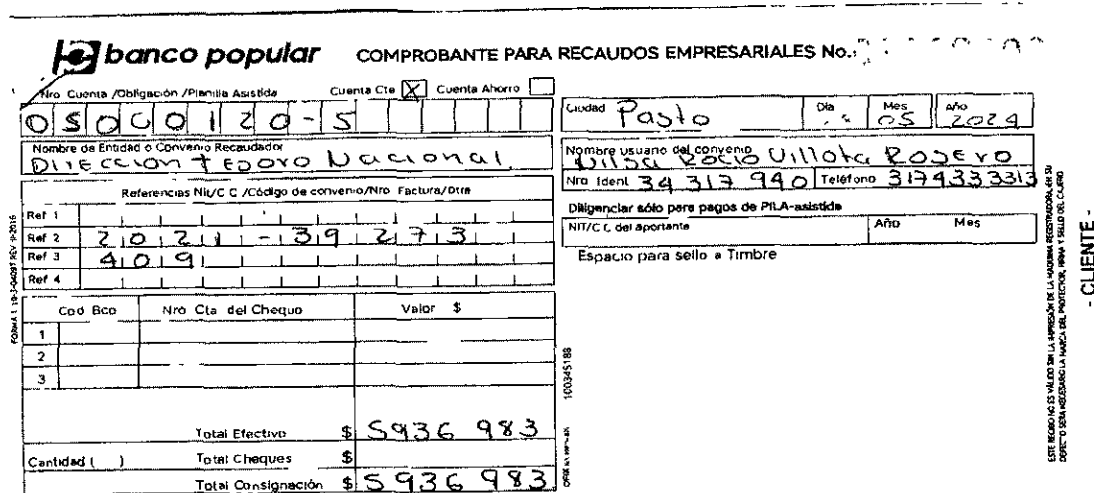 banco popular COMPROBANTE PARA RECAUDOS EMPRESARIALES No.:
Nro Cuenta /Obligación /Planilla Asistida Cuenta Cte X Cuenta Ahorro
050000120-5
Nombre de Entidad o Convenio Recaudador
Dirección Tesoro Nacional
Referencias Nit/C C /Código de convenio/Nro Factura/Otra
Ref 1
Ref 2 20211-39273
Ref 3 409
Ref 4
Cod Bco Nro Cta del Cheque Valor $
1
2
3
Total Efectivo $ 5936 983
Cantidad ( ) Total Cheques $
Total Consignación $ 5936 983
Ciudad Pasto Día Mes 05 Año 2024
Nombre usuario del convenio
Rocio Villota Rosero
Nro Ident 34 317 940 Teléfono 3174333313
Diligenciar sólo para pagos de PILA-asistida
NIT/C C del aportante Año Mes
Espacio para sello o Timbre
100345188
ESTE RECIBO NO ES VÁLIDO SIN LA IMPRESIÓN DE LA MAQUINA REGISTRADORA, EN SU
DEFECTO SERA NECESARIO LA MARCA DEL PROTECTOR, FIRMA Y SELLO DEL CAJERO
- CLIENTE -